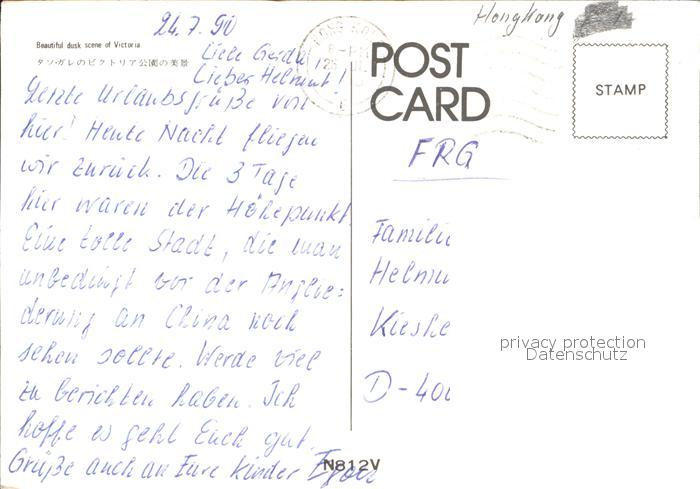 24.7.90
Hongkong
Beautiful dusk scene of Victoria
タソガレのビクトリア公園の美景
Liebe Gerda,
Lieber Helmut!
Letzte Urlaubsgrüße von
hier! Heute Nacht fliegen
wir zurück. Die 3 Tage
hier waren der Höhepunkt.
Eine tolle Stadt, die man
unbedingt vor der Anglie=
derung an China noch
sehen sollte. Werde viel
zu berichten haben. Ich
hoffe es geht Euch gut.
Grüße auch an Eure Kinder
N812V
POST
CARD
STAMP
FRG
Familie
Helmu
Kieske
D-400
privacy protection
Datenschutz